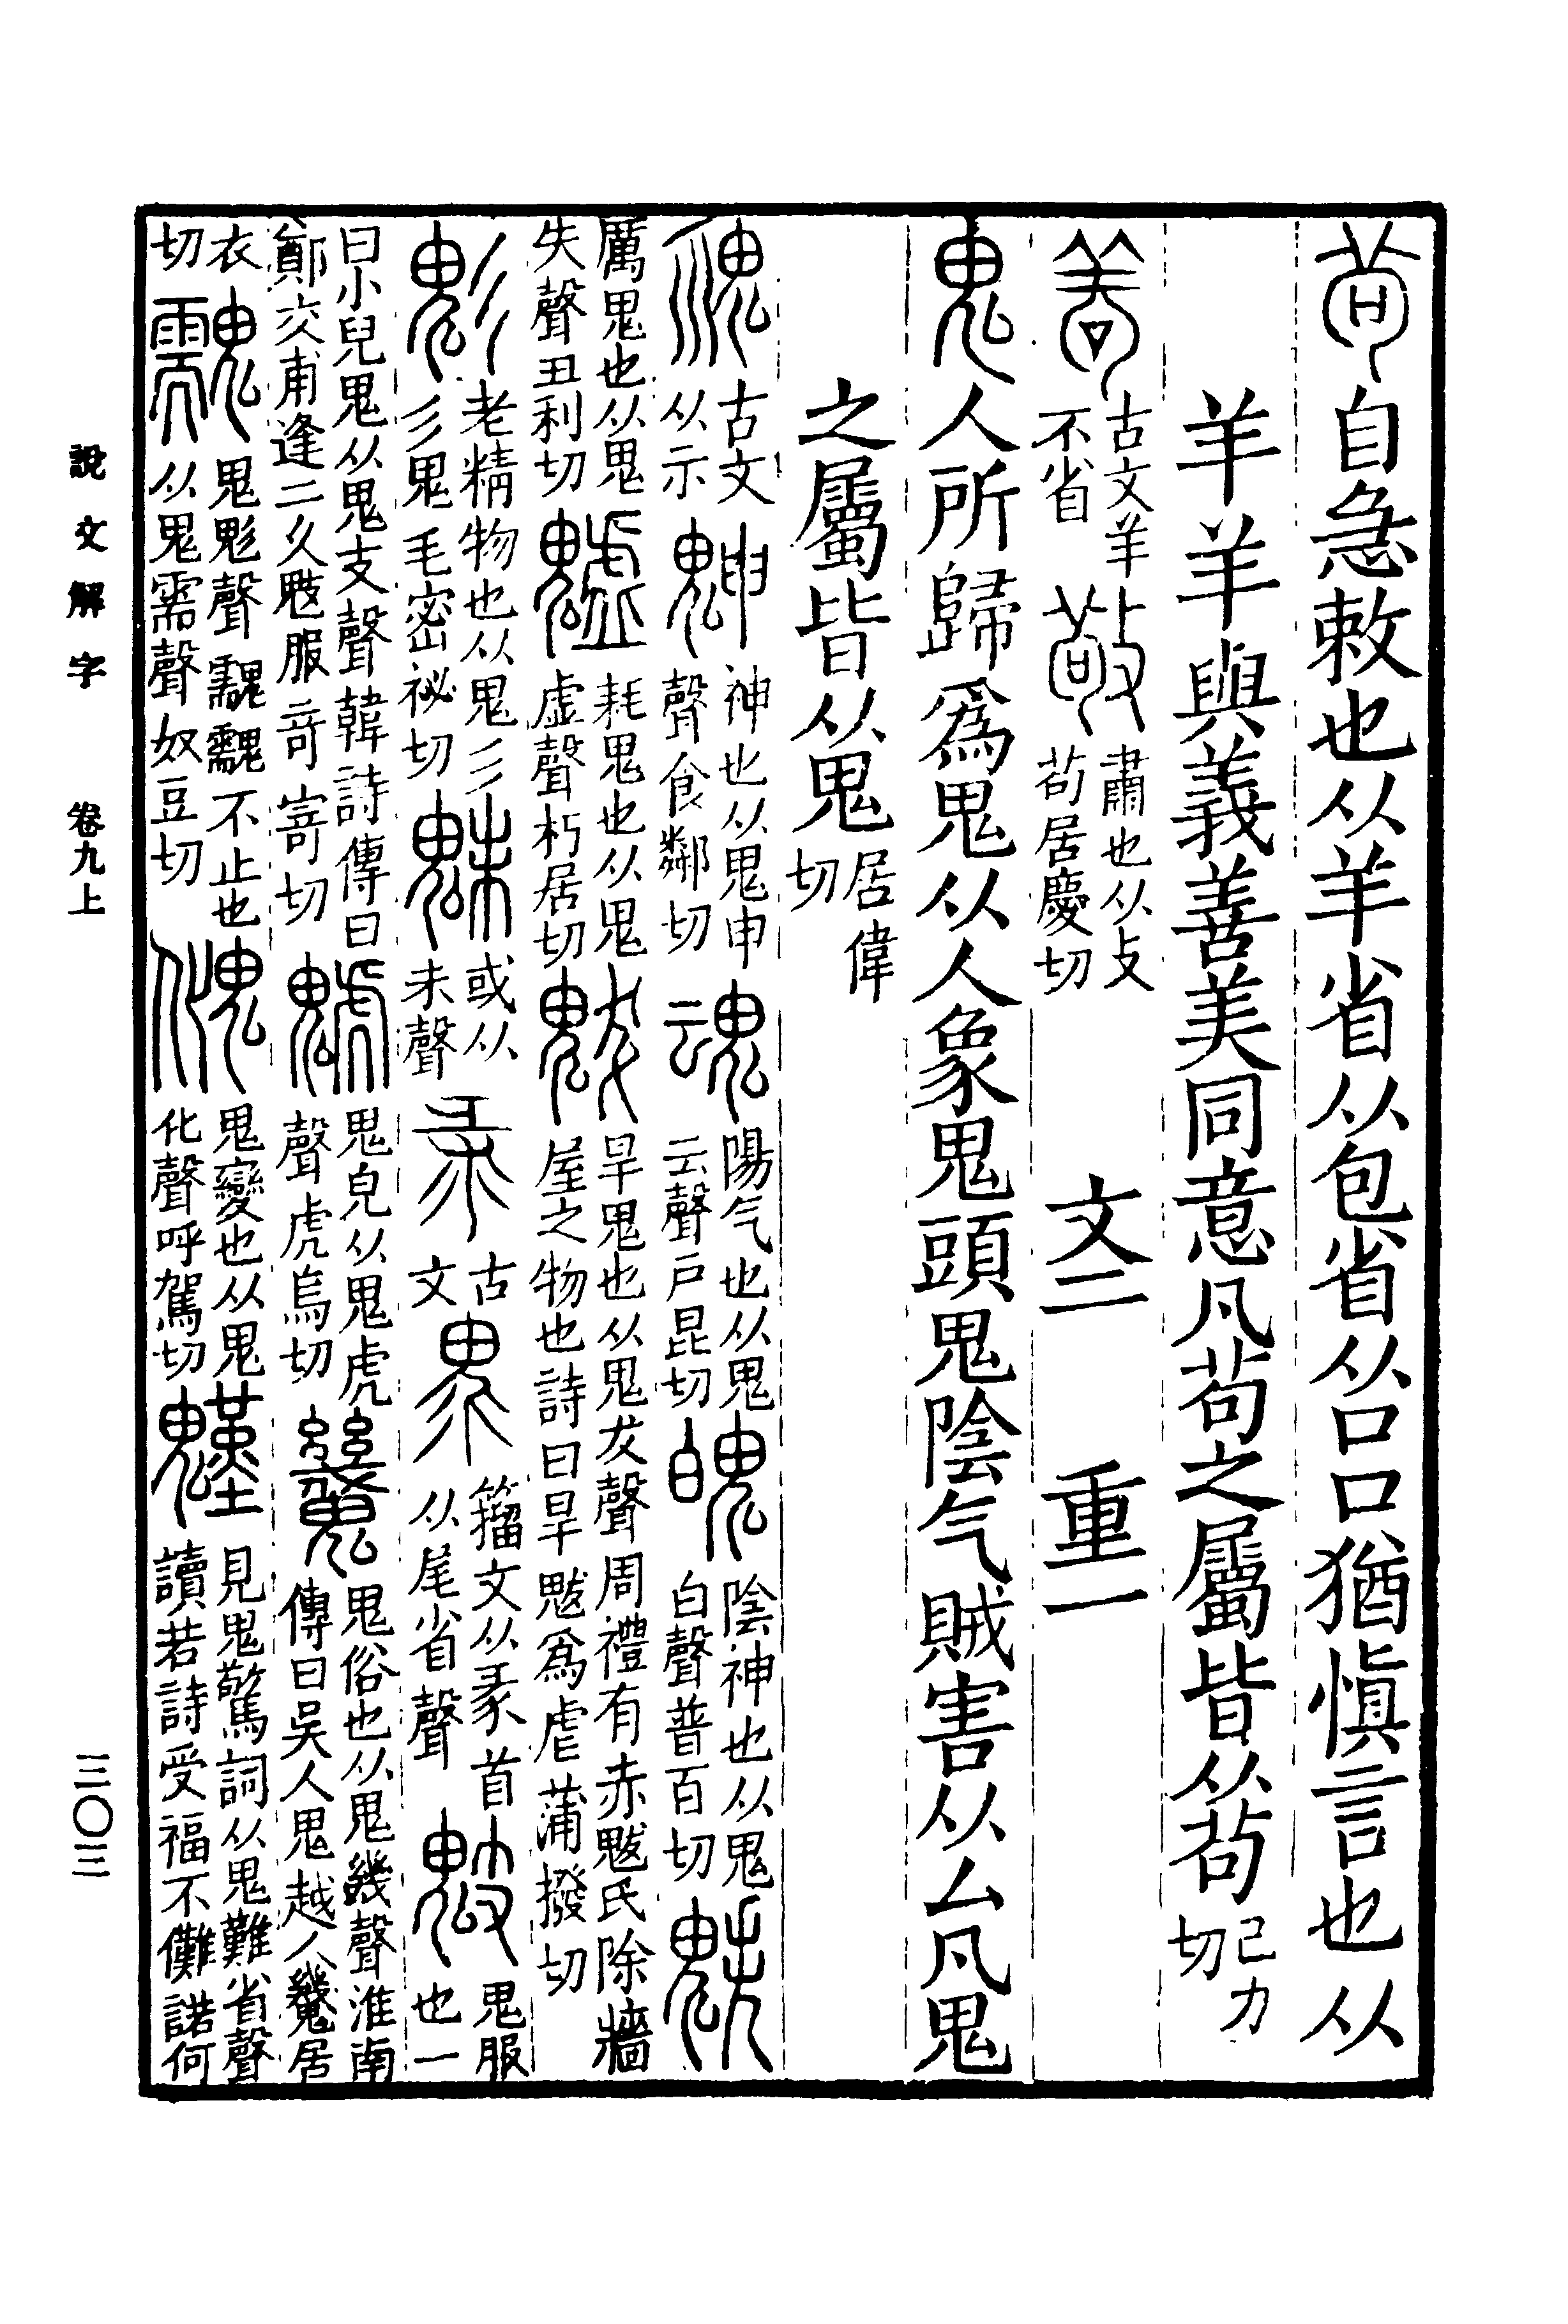 茍自急敕也从羊省从包省从口口猶慎言也从
羊羊與義善美同意凡茍之屬皆从茍己力切
古文羊不省敬肅也从攴茍居慶切 文二 重一
鬼人所歸爲鬼从人象鬼頭鬼陰气賊害从厶凡鬼
之屬皆从鬼居偉切
古文从示䰠神也从鬼申聲食鄰切魂陽气也从鬼云聲戶昆切魄陰神也从鬼白聲普百切䰡
厲鬼也从鬼失聲丑利切魖耗鬼也从鬼虛聲朽居切魃旱鬼也从鬼犮聲周禮有赤魃氏除牆屋之物也詩曰旱魃爲虐蒲撥切
鬽老精物也从鬼彡彡鬼毛密祕切魅或从未聲古文籒文从彖首从尾省聲鬾鬼服也一
曰小兒鬼从鬼支聲韓詩傳曰鄭交甫逢二女鬾服奇寄切䰧鬼皃从鬼虎聲虎烏切䰙鬼俗也从鬼幾聲淮南傳曰吳人鬼越人䰙居
衣切䰰鬼鬽聲䰰䰰不止也从鬼需聲奴豆切魤鬼變也从鬼化聲呼駕切見鬼驚詞从鬼難省聲讀若詩受福不儺諾何
說文解字 卷九上
三〇三